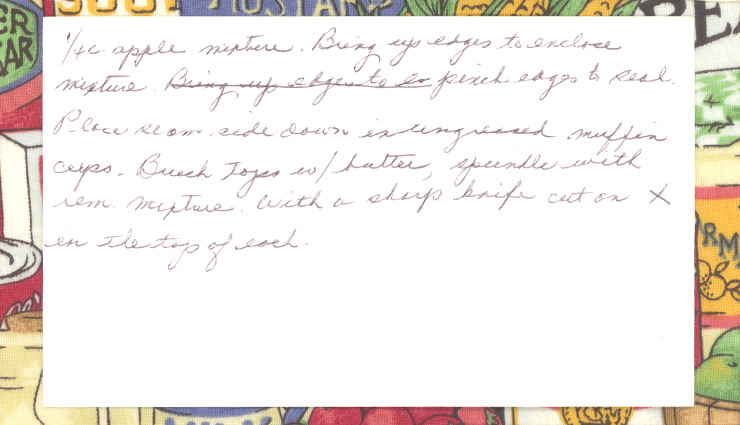 SOUP
MUSTARD
ER
GAR
1/4 c. apple mixture. Bring up edges to enclose
mixture. ~~Bring up edges to en~~ pinch edges to seal.
Place seam side down in ungreased muffin
cups. Brush Tops w/ butter, sprinkle with
rem. mixture. With a sharp knife cut an X
in the top of each.
RM